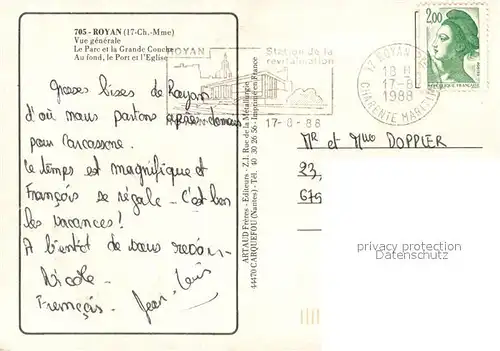 705 - ROYAN (17-Ch.-Mme)
Vue générale
Le Parc et la Grande Conche
Au fond, le Port et l'Eglise
Grosses bises de Royan
d'où nous partons après demain
pour Carcassonne.
Le temps est magnifique et
François se régale - C'est bon
les vacances!
A bientôt de vous revoir -
Nicole
François. Jean-Louis
ARTAUD Frères - Editeurs - Z.I. Rue de la Métallurgie
44470 CARQUEFOU (Nantes) - Tél. 40 30 26 56 - Imprimé en France
ROYAN
Station de la
revitalisation
17-8-88
17 ROYAN
18 H
17-8
1988
CHARENTE MARITIME
2,00
REPUBLIQUE FRANÇAISE
Mr et Mme DOPPLER
23,
679
privacy protection
watermark